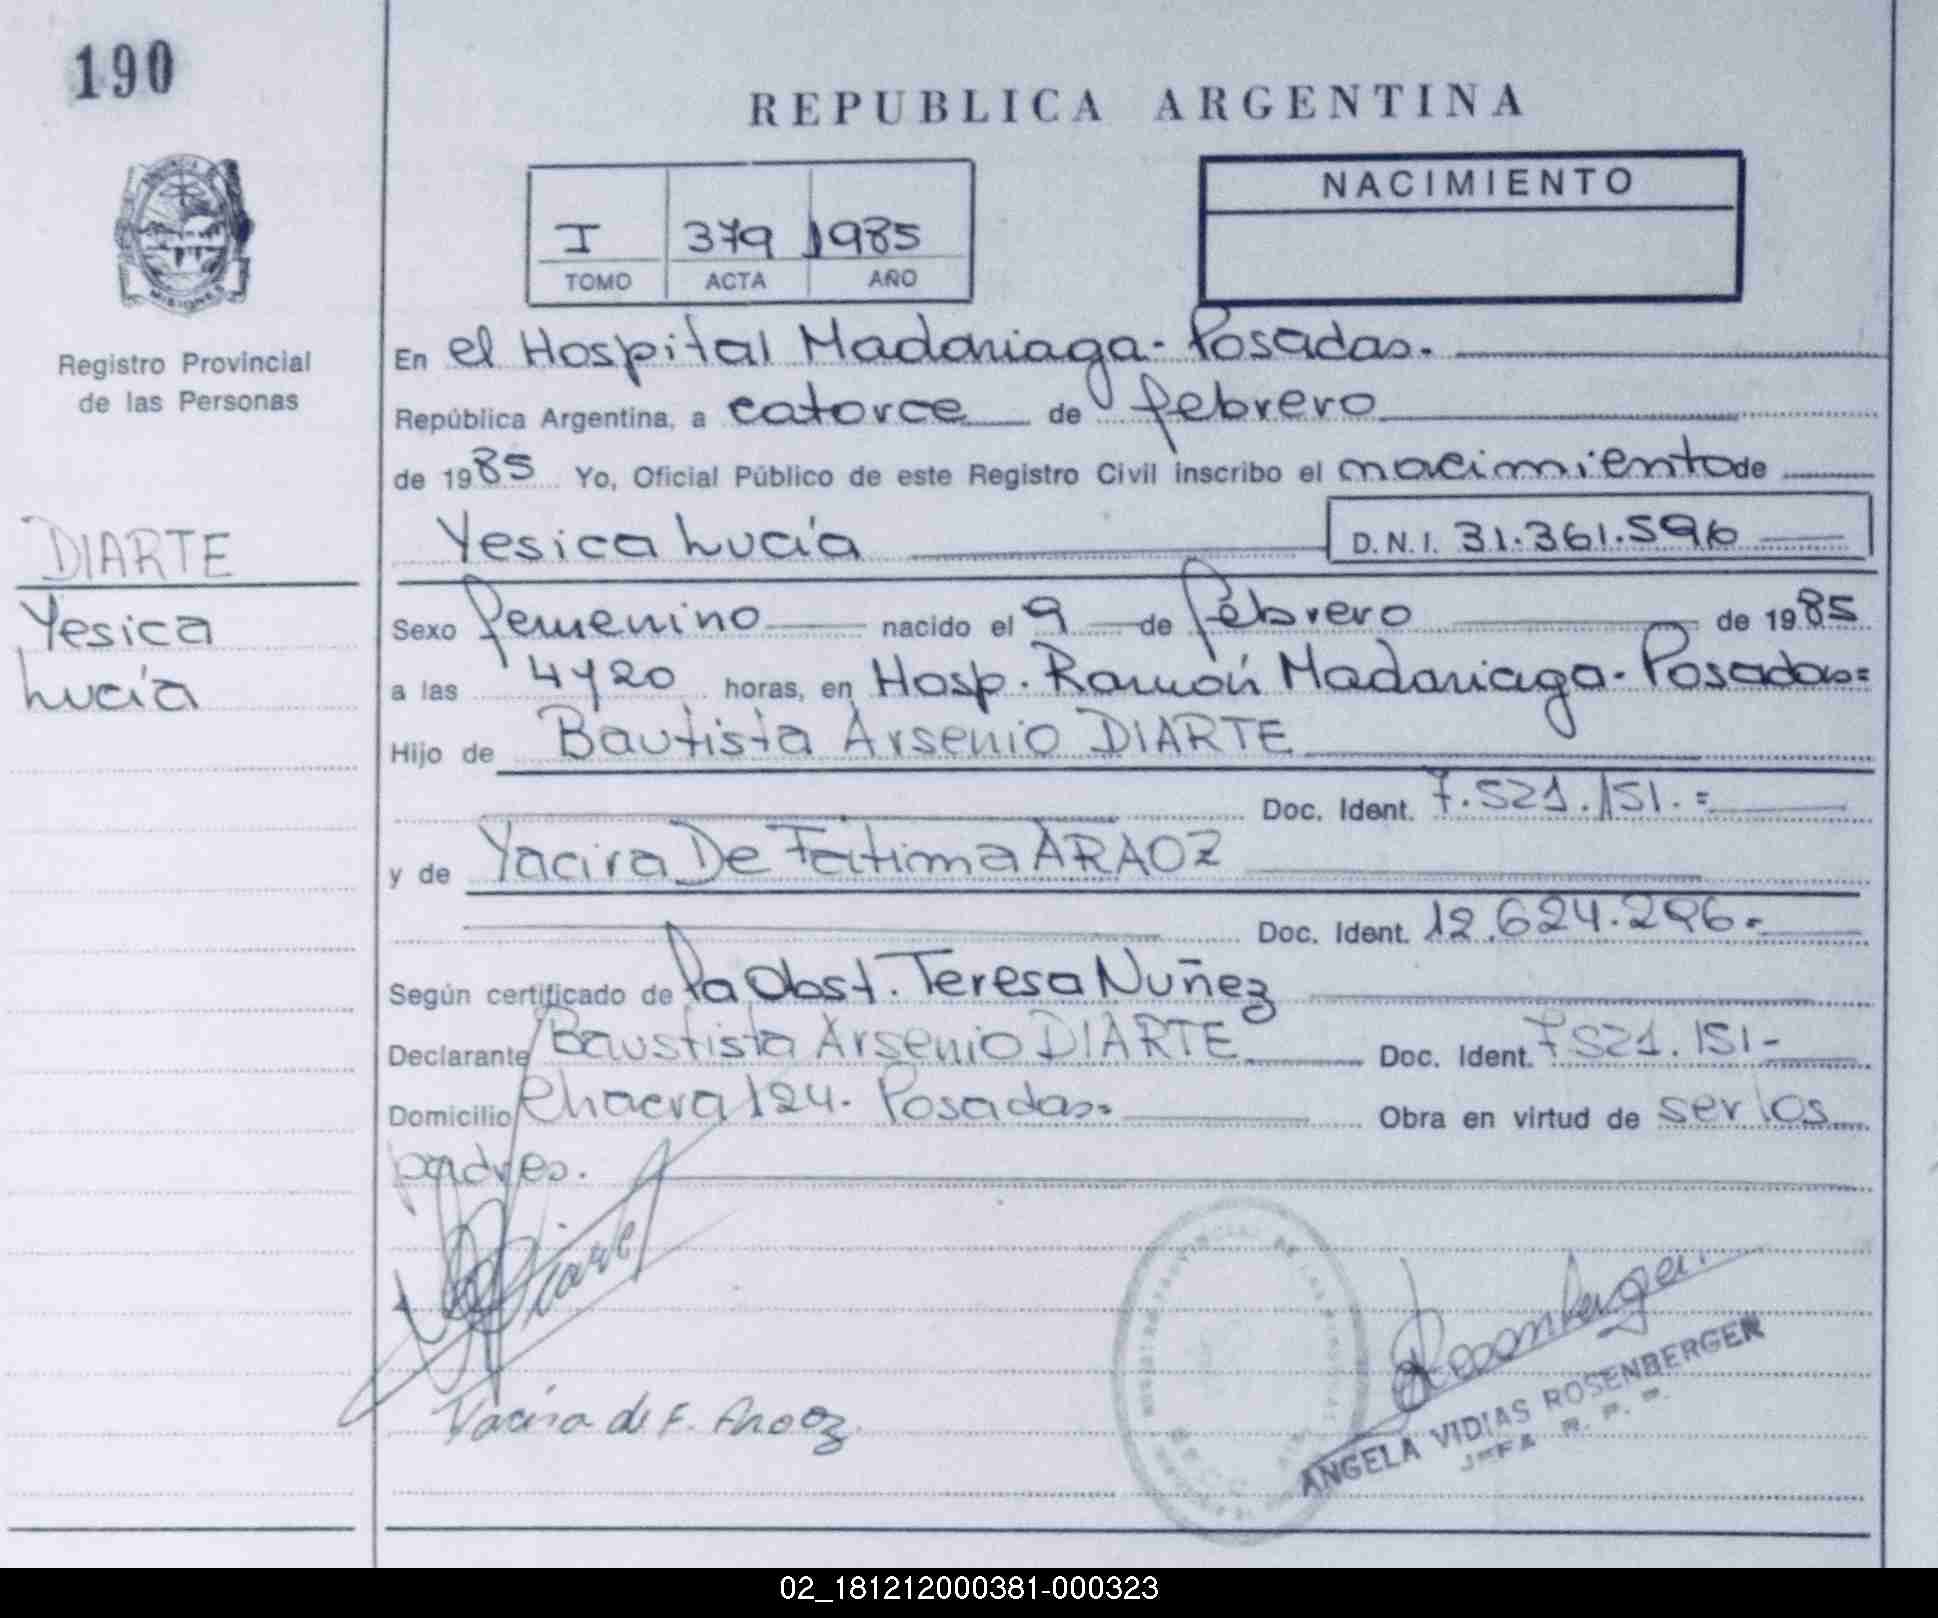 190
REPUBLICA ARGENTINA
NACIMIENTO
I 379 1985
TOMO ACTA AÑO
MISIONES
Registro Provincial
de las Personas
En el Hospital Madariaga - Posadas.
República Argentina, a catorce de febrero
de 1985 Yo, Oficial Público de este Registro Civil inscribo el nacimiento de
DIARTE
Yesica
Lucía
Yesica Lucía D.N.I. 31.361.596
Sexo femenino nacido el 9 de febrero de 1985
a las 4 y 20 horas, en Hosp. Ramón Madariaga - Posadas=
Hijo de Bautista Arsenio DIARTE
Doc. Ident. 7.521.151.=
y de Yacira De Fátima ARAOZ
Doc. Ident. 12.624.296.-
Según certificado de la Obst. Teresa Nuñez
Declarante Baustista Arsenio DIARTE Doc. Ident. 7521.151-
Domicilio 124. Posadas. Obra en virtud de ser los
padres.
Diarte
Yacira de F. Araoz
Rosenberger
ANGELA VIDIAS ROSENBERGER
JEFA R. P. P.
02_181212000381-000323